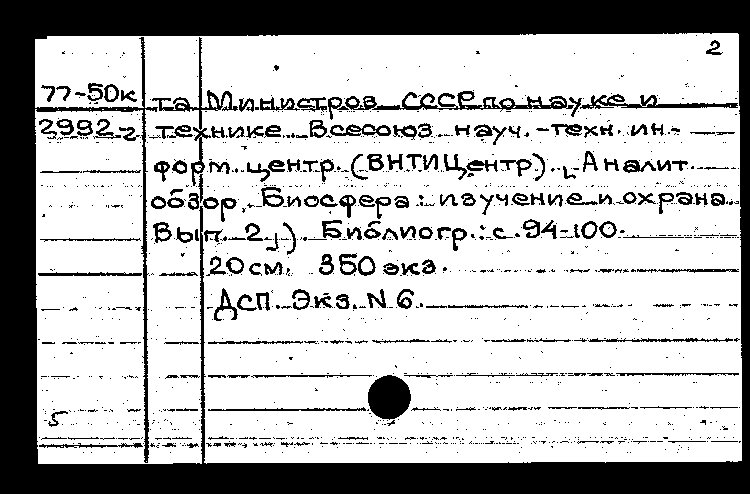 2
77-50к та Министров СССР по науке и
2992-2 технике. Всесоюз. науч.-техн. ин-
форм. центр. (ВНТИЦентр). [Аналит.
обзор. Биосфера: изучение и охрана.
Вып. 2]). Библиогр.: с. 94-100.
20 см. 350 экз.
Дсп. Экз. N 6.
5